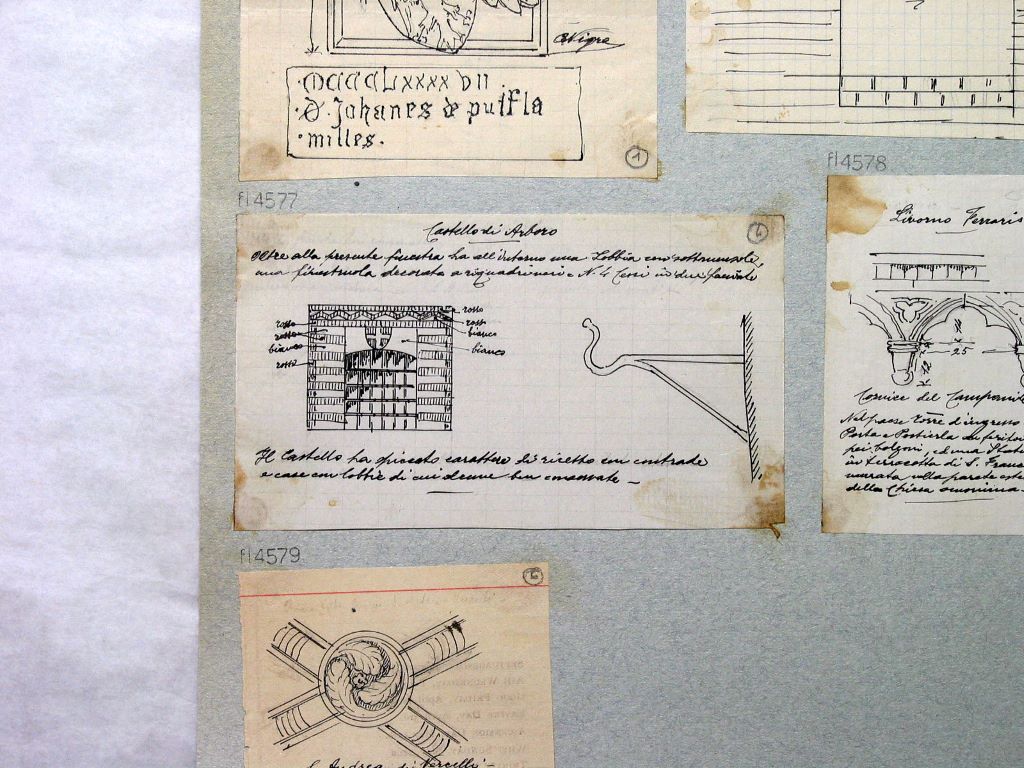 CNigra
MCCCCLXXXX VII
D. Johanes de putifla
milles.
1
fl4577
fl4578
Castello di Arboro
6
Oltre alla presente finestra ha all'interno una Lobbia con sottomensole,
una finestruola decorata a riquadri neri e N. 4 Torri in due facciate
rosso
rosso
bianco
rosso
rosso
rosso
bianco
bianco
Il Castello ha spiccato carattere di ricetto con contrade
e case con lobbie di cui alcune ben conservate –
Livorno Ferraris
25
Cornice del
Nel paese Torre d'ingresso
Porta e Postierla con feritoie
poi bolzoni, ed una Statua
in terracotta di S. Franc
murata nella parete este
della Chiesa omonima –
fl4579
6
S. Andrea di Vercelli –